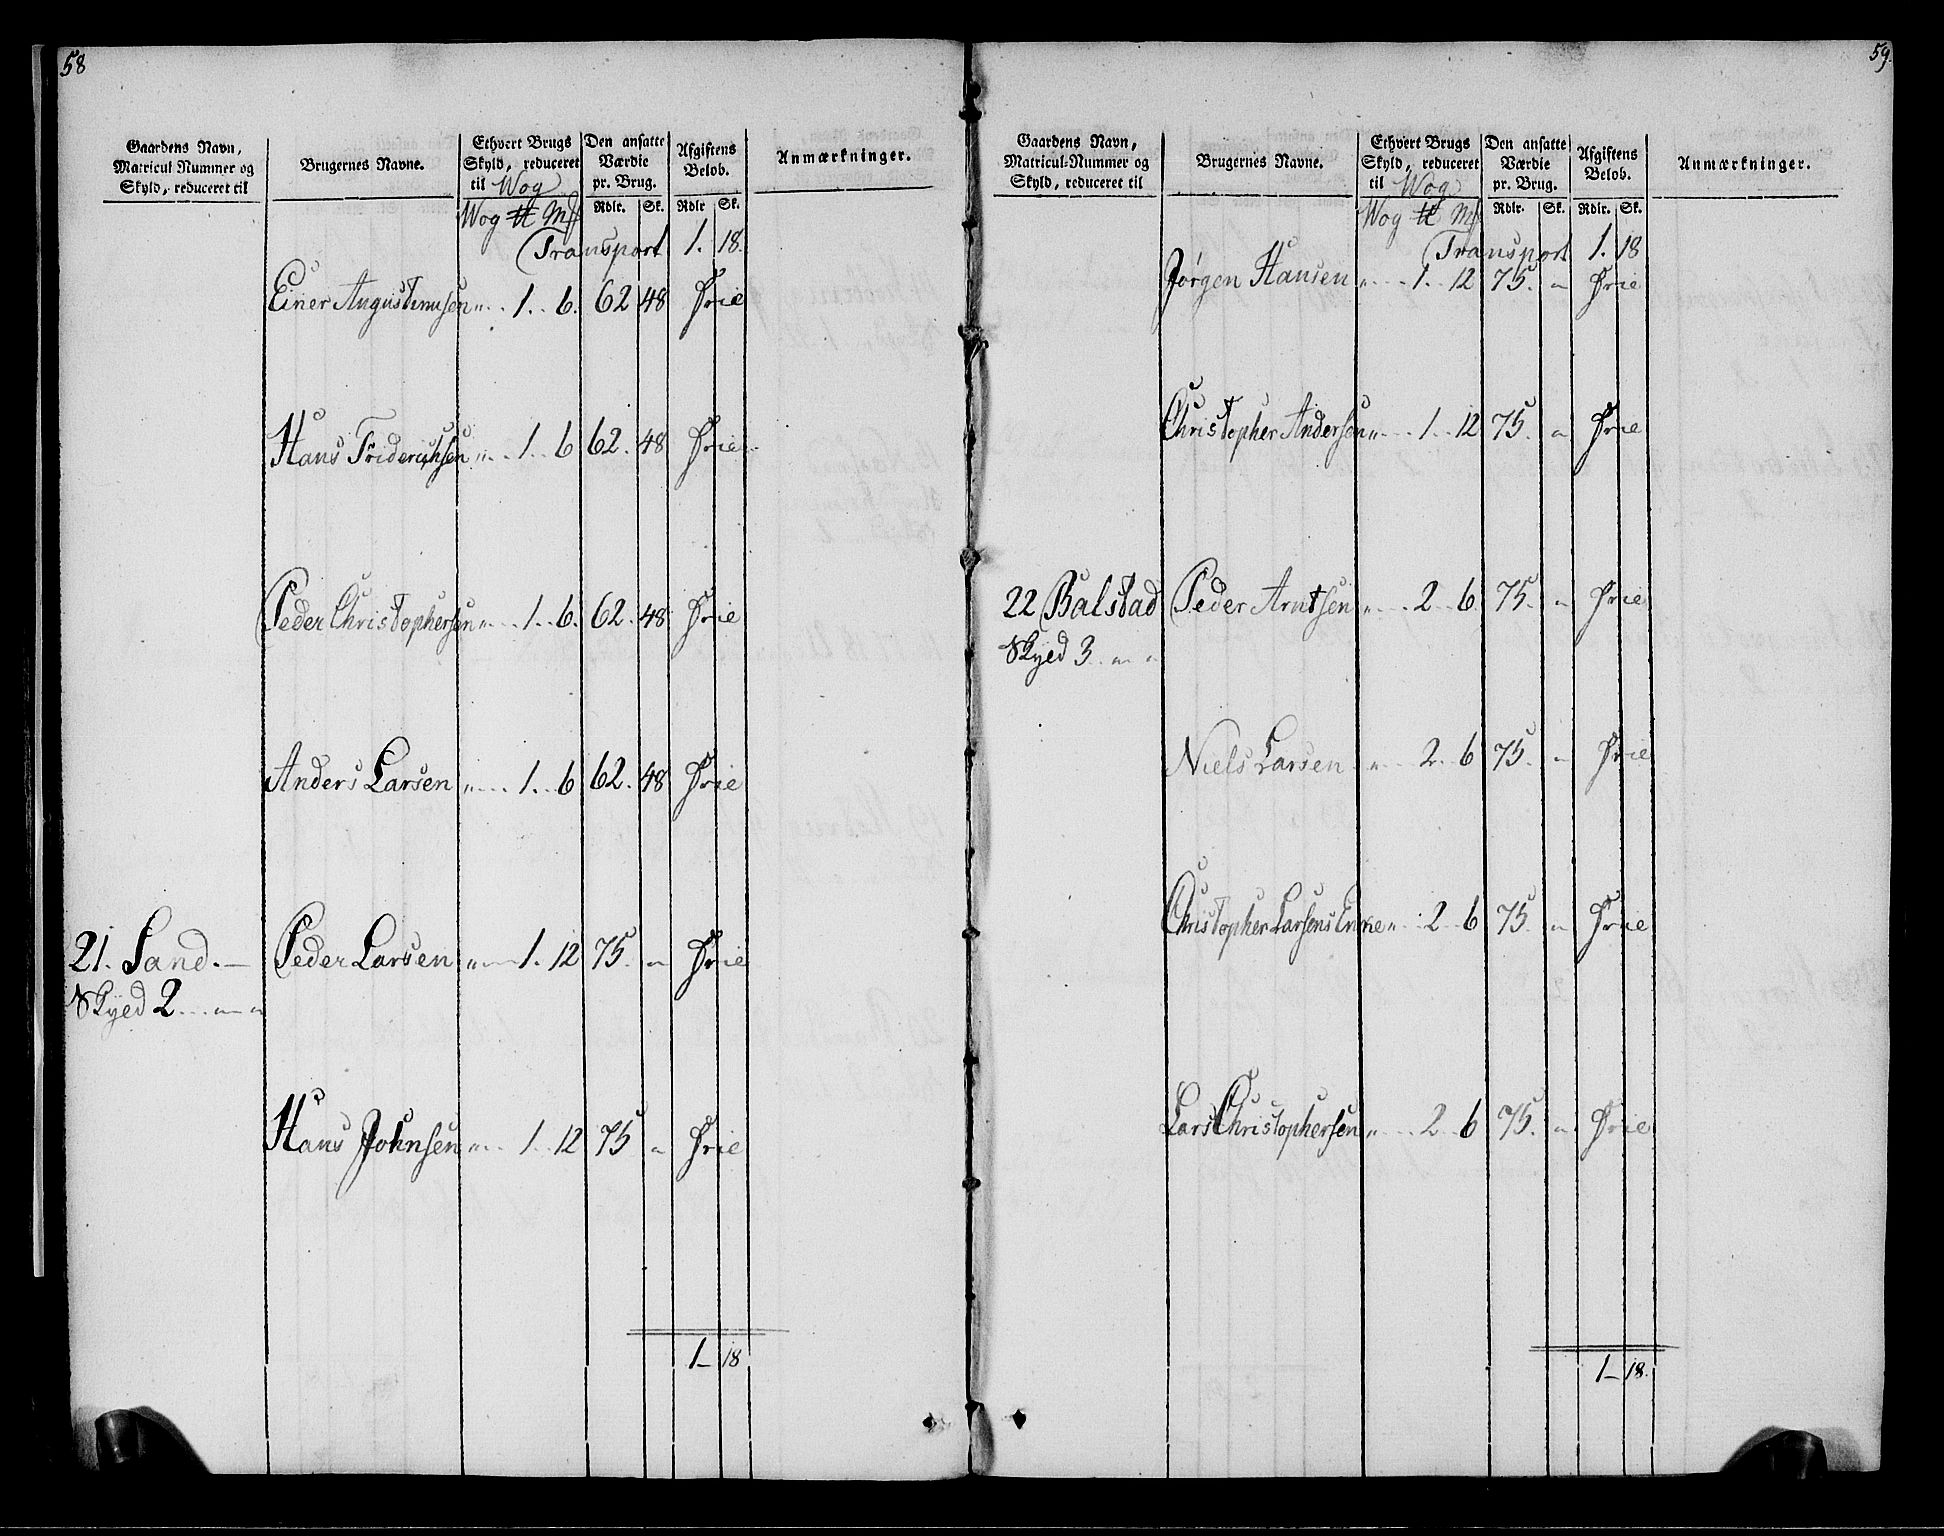 58
Gaardens Navn, Matricul Nummer og Skyld, reduceret til | Brugernes Navne. | Ethvert Brugs Skyld, reduceret til Wog | Den ansatte Værdie pr. Brug. | Afgiftens Beløb. | Anmærkninger.
Wog ℔ Mk | Rdlr. | Sk. | Rdlr | Sk.
Transport 1. 18.
Einer Augustinusen „ 1 . . 6. 62 48 Frie
Hans Friderichsen „ 1 . . 6 62. 48 Frie
Peder Christophersen „ 1 . . 6. 62. 48 Frie
Anders Larsen „ 1 . . 6 62. 48 Frie
21. Sand. — Peder Larsen „ 1. 12 75. „ Frie
Skyld 2 . . „ „
Hans Johnsen „ 1 . . 12 75 „ Frie
1 – 18
59.
Gaardens Navn, Matricul-Nummer og Skyld, reduceret til | Brugernes Navne. | Ethvert Brugs Skyld, reduceret til Wog | Den ansatte Værdie pr. Brug. | Afgiftens Beløb. | Anmærkninger.
Wog ℔ Mk | Rdlr. | Sk. | Rdlr. | Sk.
Transport 1. 18
Jørgen Hansen „ 1 . . 12 75. „ Frie
Christopher Andersen „ 1 . . 12 75. „ Frie
22 Balstad Peder Arntsen „ 2 . . 6 75. „ Frie
Skyld 3 . „ „
Niels Larsen „ 2 . . 6 75. „ Frie
Christopher Larsens Enke „ 2 . . 6 75. „ Frie
Lars Christophersen „ 2 . . 6 75. „ Frie
1 – 18.